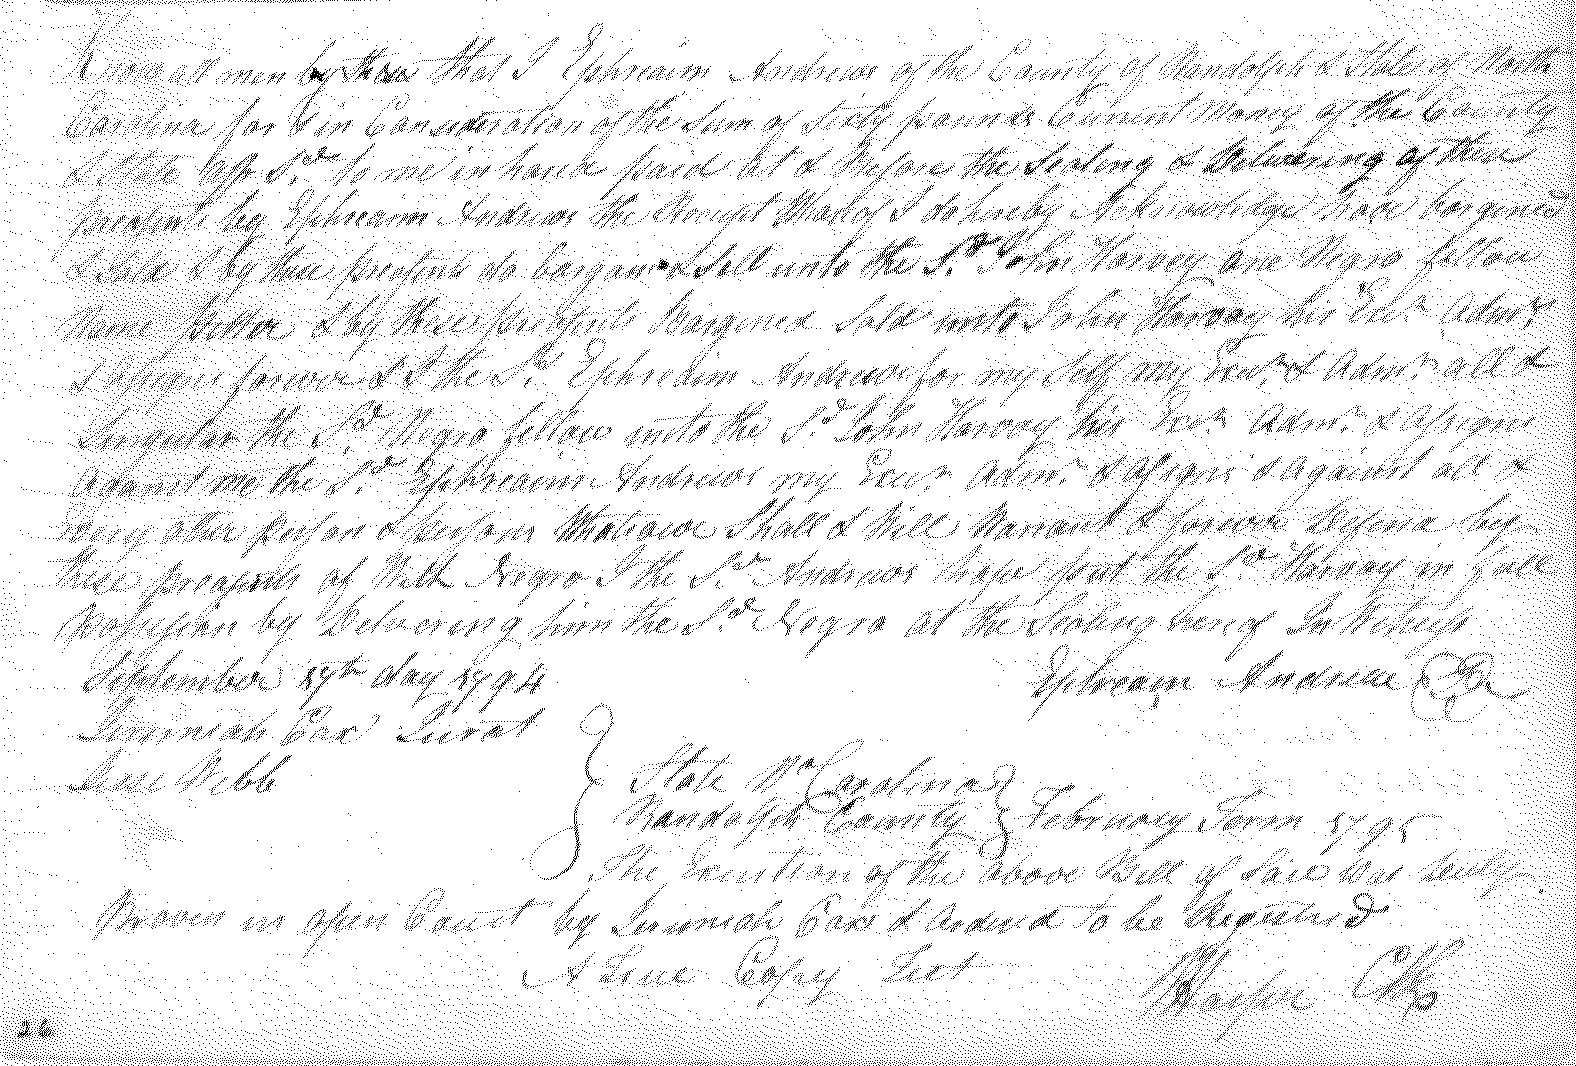 Know all men by these that I Ephreaim Andrews of the County of Randolph & State of North
Carolina for & in Consideration of the Sum of Sixty pounds Current Money of the County
& State affo Sd. to me in hand paid at & Before the Sealing & Delivering of these
presents by Ephreaim Andrews the Receipt Whareof I do hereby Acknowledge have bargined
& Sold & by these presents do bargain & Sell unto the Sd. John Harvey one Negro fellow
Name & by these presents Bargined Sold unto John Harvey his Exr. Admr.
& assigns forever & I the Sd. Ephreaim Andrews for my Self my Exer. & Admr. all &
Singular the Sd. Negro fellow unto the Sd. John Harvey his Exr. Admr. & assigns
Against me the Sd. Ephreaim Andrews my Exer. Admr. & assigns & against all &
every other person & persons Whatsoever Shall & Will Warrant & forever Defend by
these presents of Which Negro I the Sd. Andrews have put the Sd. Harvey in full
Possession by Delivering him the Sd. Negro at the Sealing hereof In Witness
September 17th day 1794
Ephream Andrews
Jeremiah Cox Jurat
Jesse Webb
State No Carolina
Randolph County } February Term 1795
The Execution of the above Bill of Sale was duly
Proven in open Court by Jeremiah Cox & Ordered to be Registred
A True Copy Test
Harper Clk
26